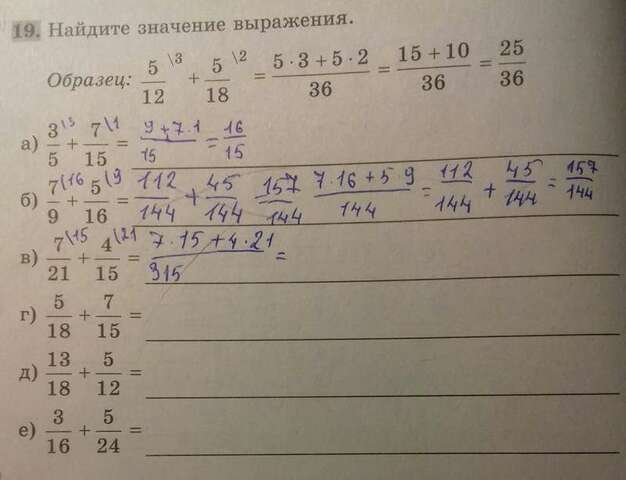 19. Найдите значение выражения.
Образец: 5/12 \3 + 5/18 \2 = (5 · 3 + 5 · 2)/36 = (15 + 10)/36 = 25/36
а) 3/5 \3 + 7/15 \1 = (9 + 7 · 1)/15 = 16/15
б) 7/9 \16 + 5/16 \9 = 112/144 + 45/144 157/144 (7 · 16 + 5 9)/144 = 112/144 + 45/144 = 157/144
в) 7/21 \15 + 4/15 \21 = (7 · 15 + 4 · 21)/315 =
г) 5/18 + 7/15 =
д) 13/18 + 5/12 =
е) 3/16 + 5/24 =